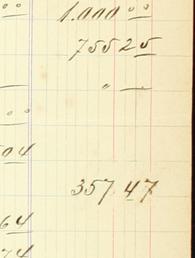 00 1.000 00
755 25
" —
00
04
357 47
64
74